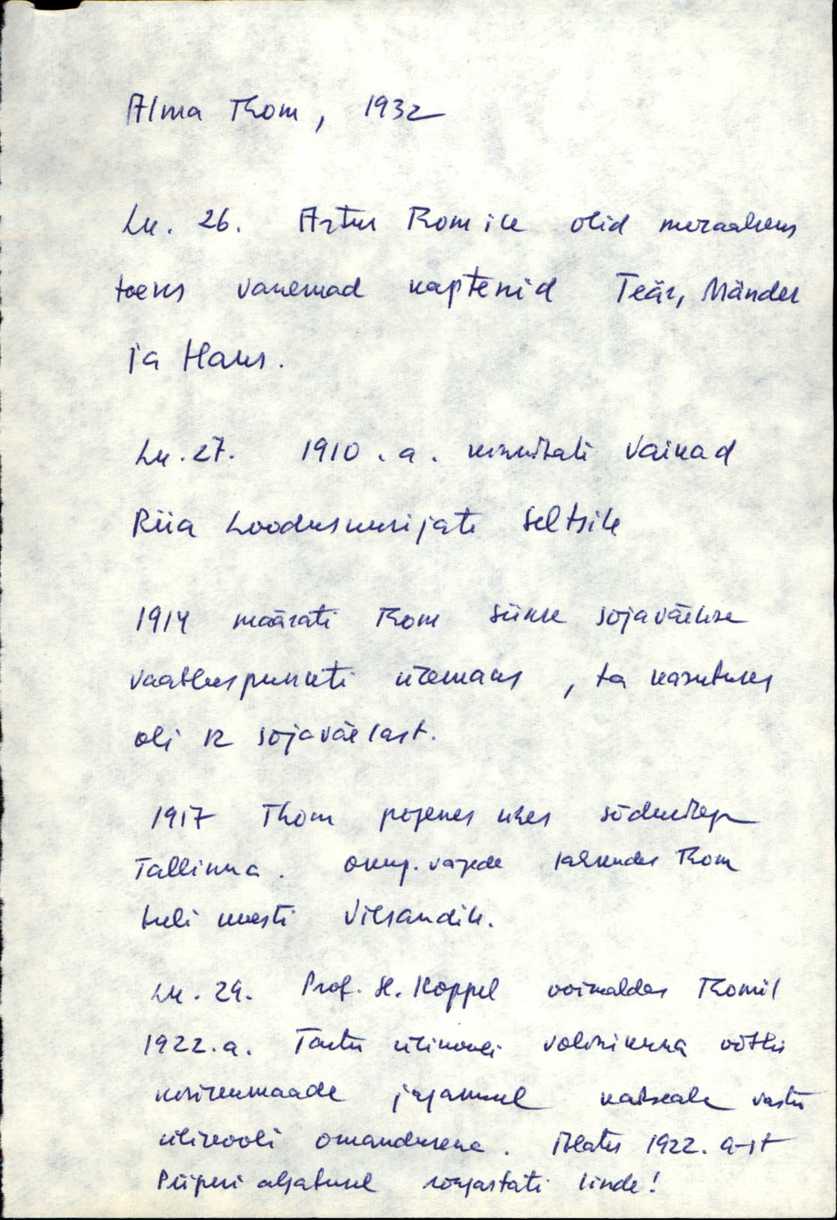 Alma Thom, 1932
Lk. 26. Artur Thomile olid meraakens
vanemad kaptenid Teär, Mänder
ja Hans.
Lk. 27. 1910.a. Vaikad
Riia Loodusuurijate Seltsile
1914 määrati Thom siinse sõjaväelise
vaatluspunkti ülemaks, ta kasutuses
oli 12 sõjaväelast.
1917 Thom põgenes ühes sõduritega
Tallinna. Okup. vägede lahkudes Thom
tuli uuesti Vilsandile.
Lk. 29. Prof. H. Koppel võimaldas Thomil
1922.a. Tartu ülikooli volinikuna võtta
kroonumaade jagamisel vastu
ülikooli omandusena. Alates 1922. a-st
Piiperi algatusel rõngastati linde!